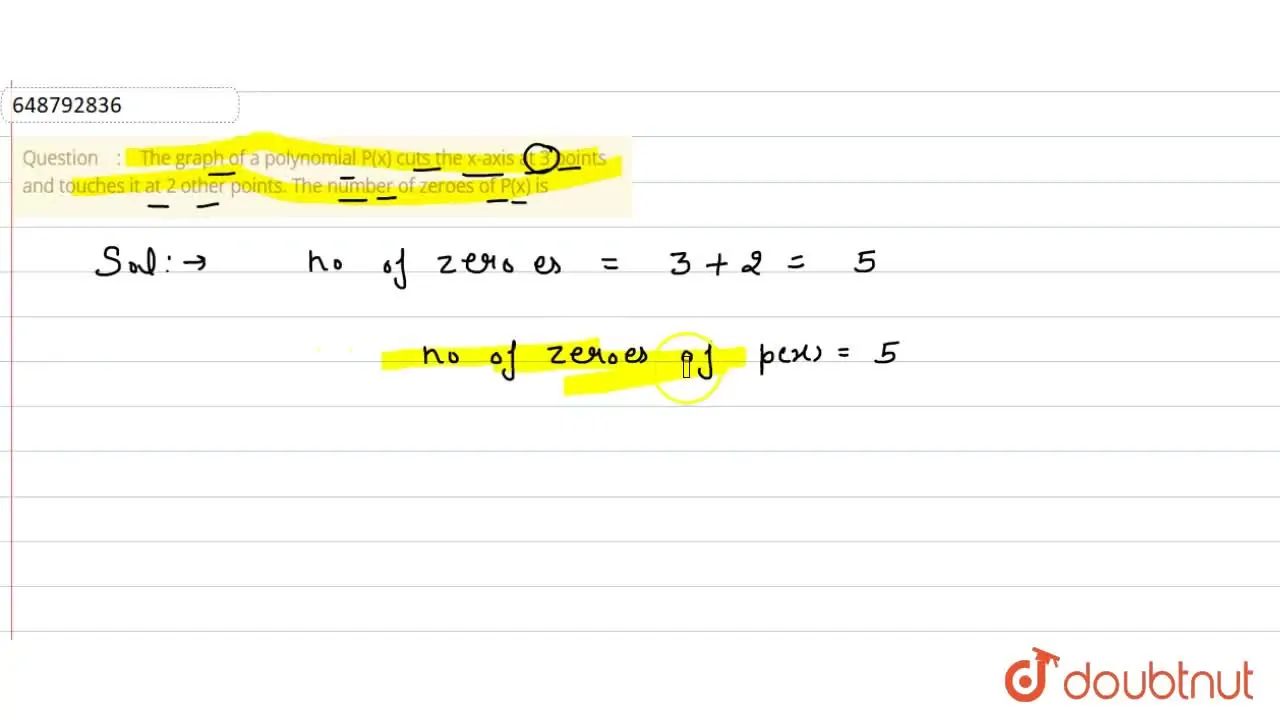 648792836
Question : The graph of a polynomial P(x) cuts the x-axis at 3 points
and touches it at 2 other points. The number of zeroes of P(x) is
Sol:→ no of zeroes = 3+2 = 5
no of zeroes of p(x) = 5
doubtnut